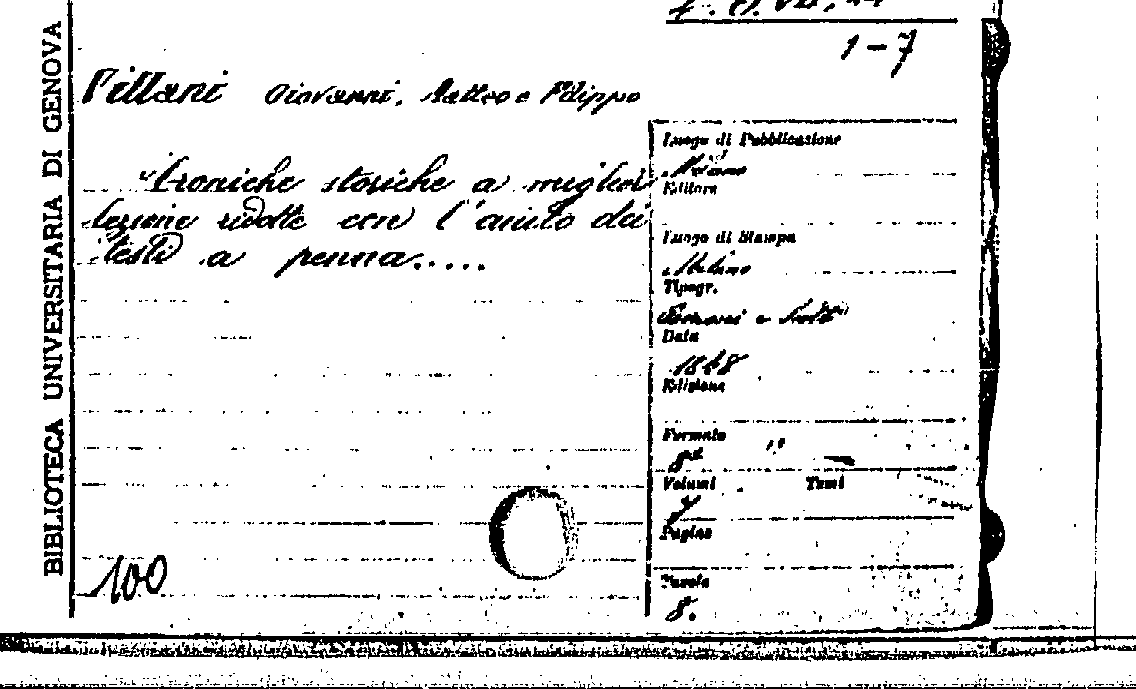 BIBLIOTECA UNIVERSITARIA DI GENOVA
1-7
Villani Giovanni, Matteo e Filippo
"Croniche storiche a miglior
lezione ridotte con l'aiuto dei
testi a penna.....
100
Luogo di Pubblicazione
Milano
Editore
Luogo di Stampa
Milano
Tipogr.
Data
1848
Edizione
Formato
8°
Volumi Tomi
7
Pagine
Tavole
8.